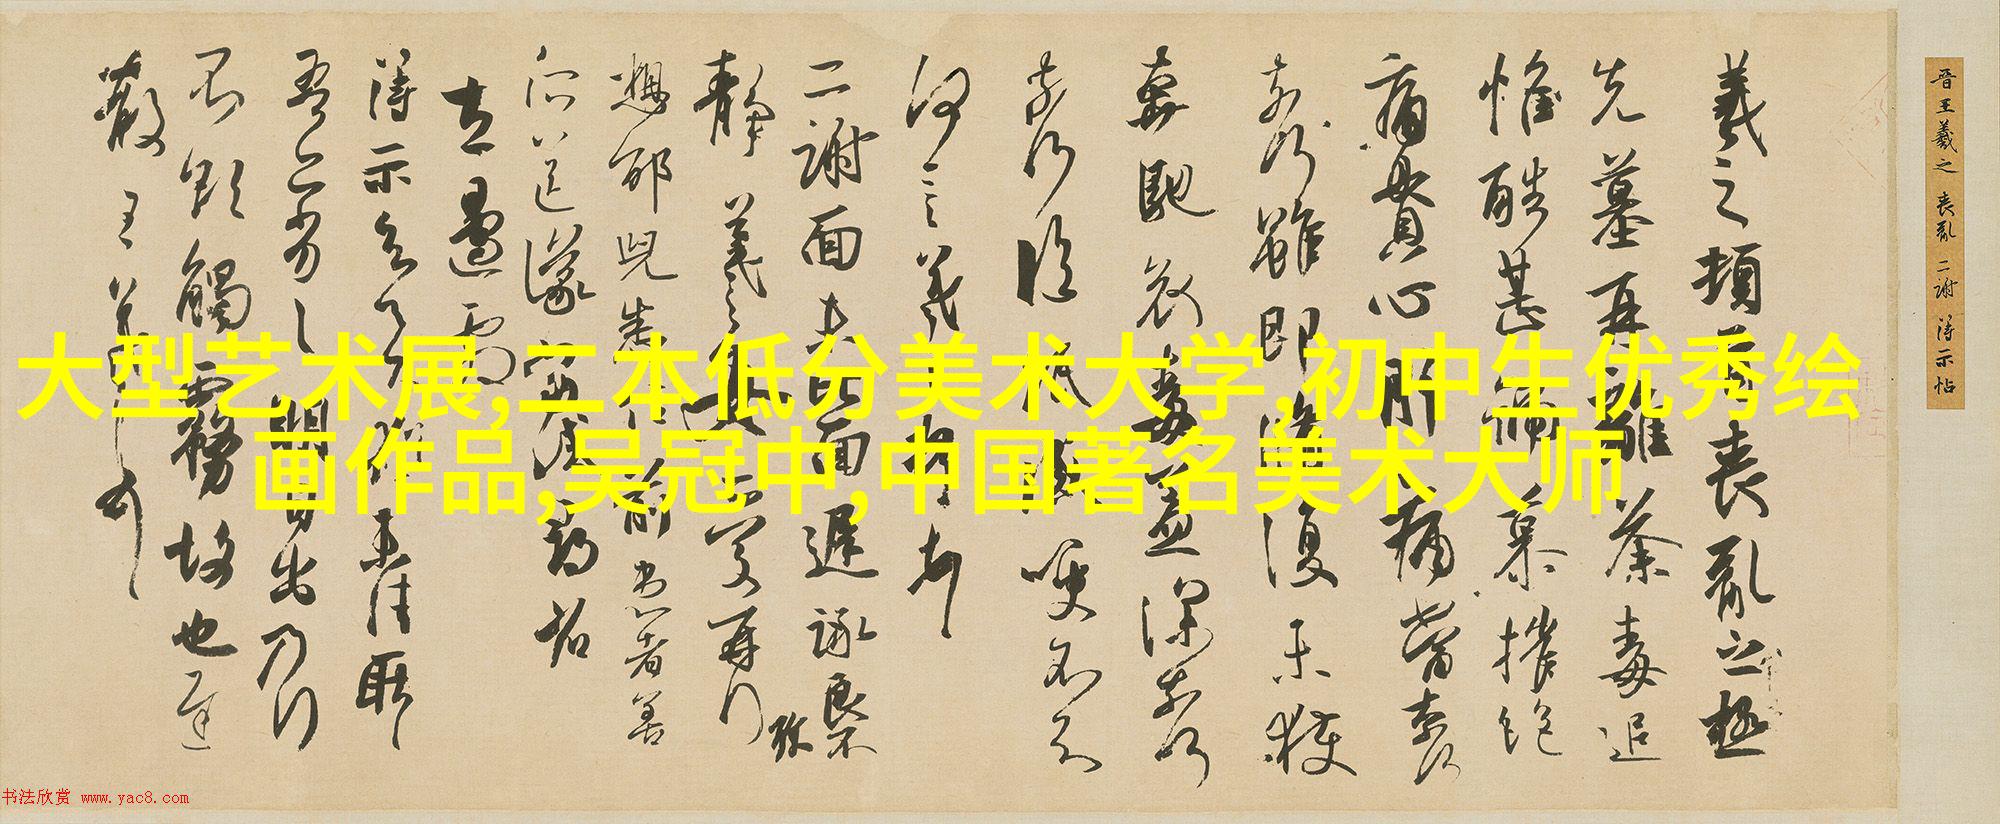 晉王羲之 喪亂 二謝 得示帖
羲之頓首喪亂之極
先墓再離荼毒追
惟酷甚號慕摧絕
痛貫心肝痛當奈何
奈何雖即脩復未獲
奔馳哀毒益深奈何
奈何臨紙感哽不知
何言羲之頓首頓首
二謝面未比面遲詠良不
靜羲之女愛再拜
想邰兒悉佳前患者善
得示知足下猶未佳耿
吾亦劣劣明日出乃行
不欲觸霧故也遲
散王羲之頓首
大型艺术展,二本低分美术大学,初中生优秀绘
画作品,吴冠中,中国著名美术大师
书法欣赏 www.yac8.com